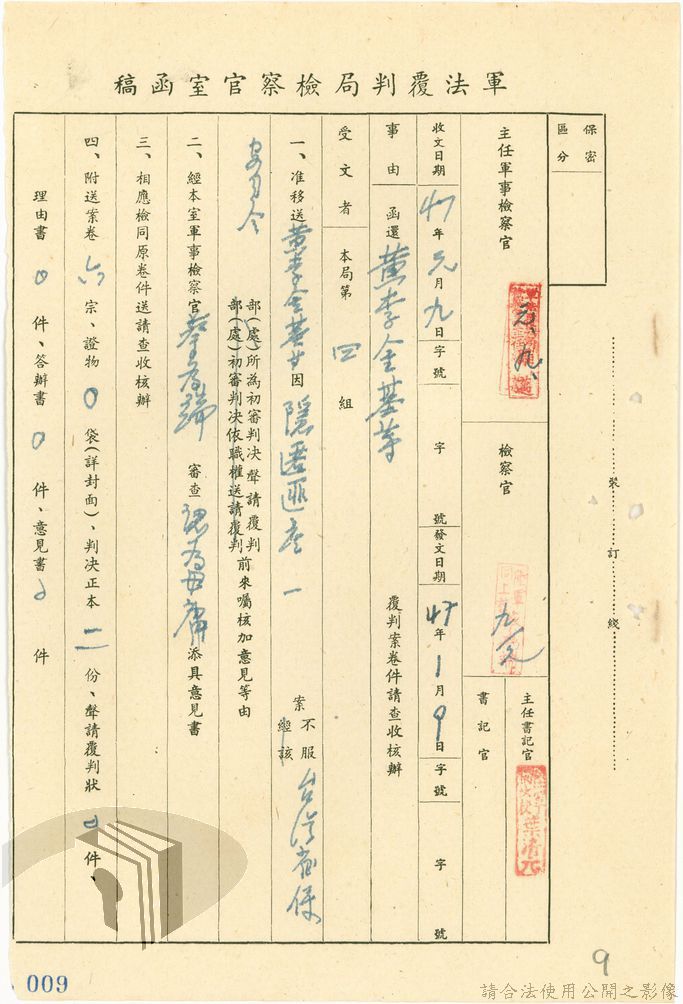 軍法覆判局檢察官室函稿
保密區分
主任軍事檢察官
元、九、
檢察官
九/元
主任書記官
葉清
書記官
收文日期 47年元月九日 字號 字 號 發文日期 47年1月9日 字號 字 號
事由 函還黃李金基等 覆判案卷件請查收核辦
受文者 本局第四組
一、准移送黃李金基廿因隱匿匪產一 案不服經該 台灣省保
安司令 部(處)所為初審判決聲請覆判 部(處)初審判決依職權送請覆判 前來囑核加意見等由
二、經本室軍事檢察官 審查認為毋庸添具意見書
三、相應檢同原卷件送請查收核辦
四、附送案卷六宗、證物0袋(詳封面)、判決正本二份、聲請覆判狀四件、
理由書0件、答辯書0件、意見書0件
裝 訂 線
9
009
請合法使用公開之影像